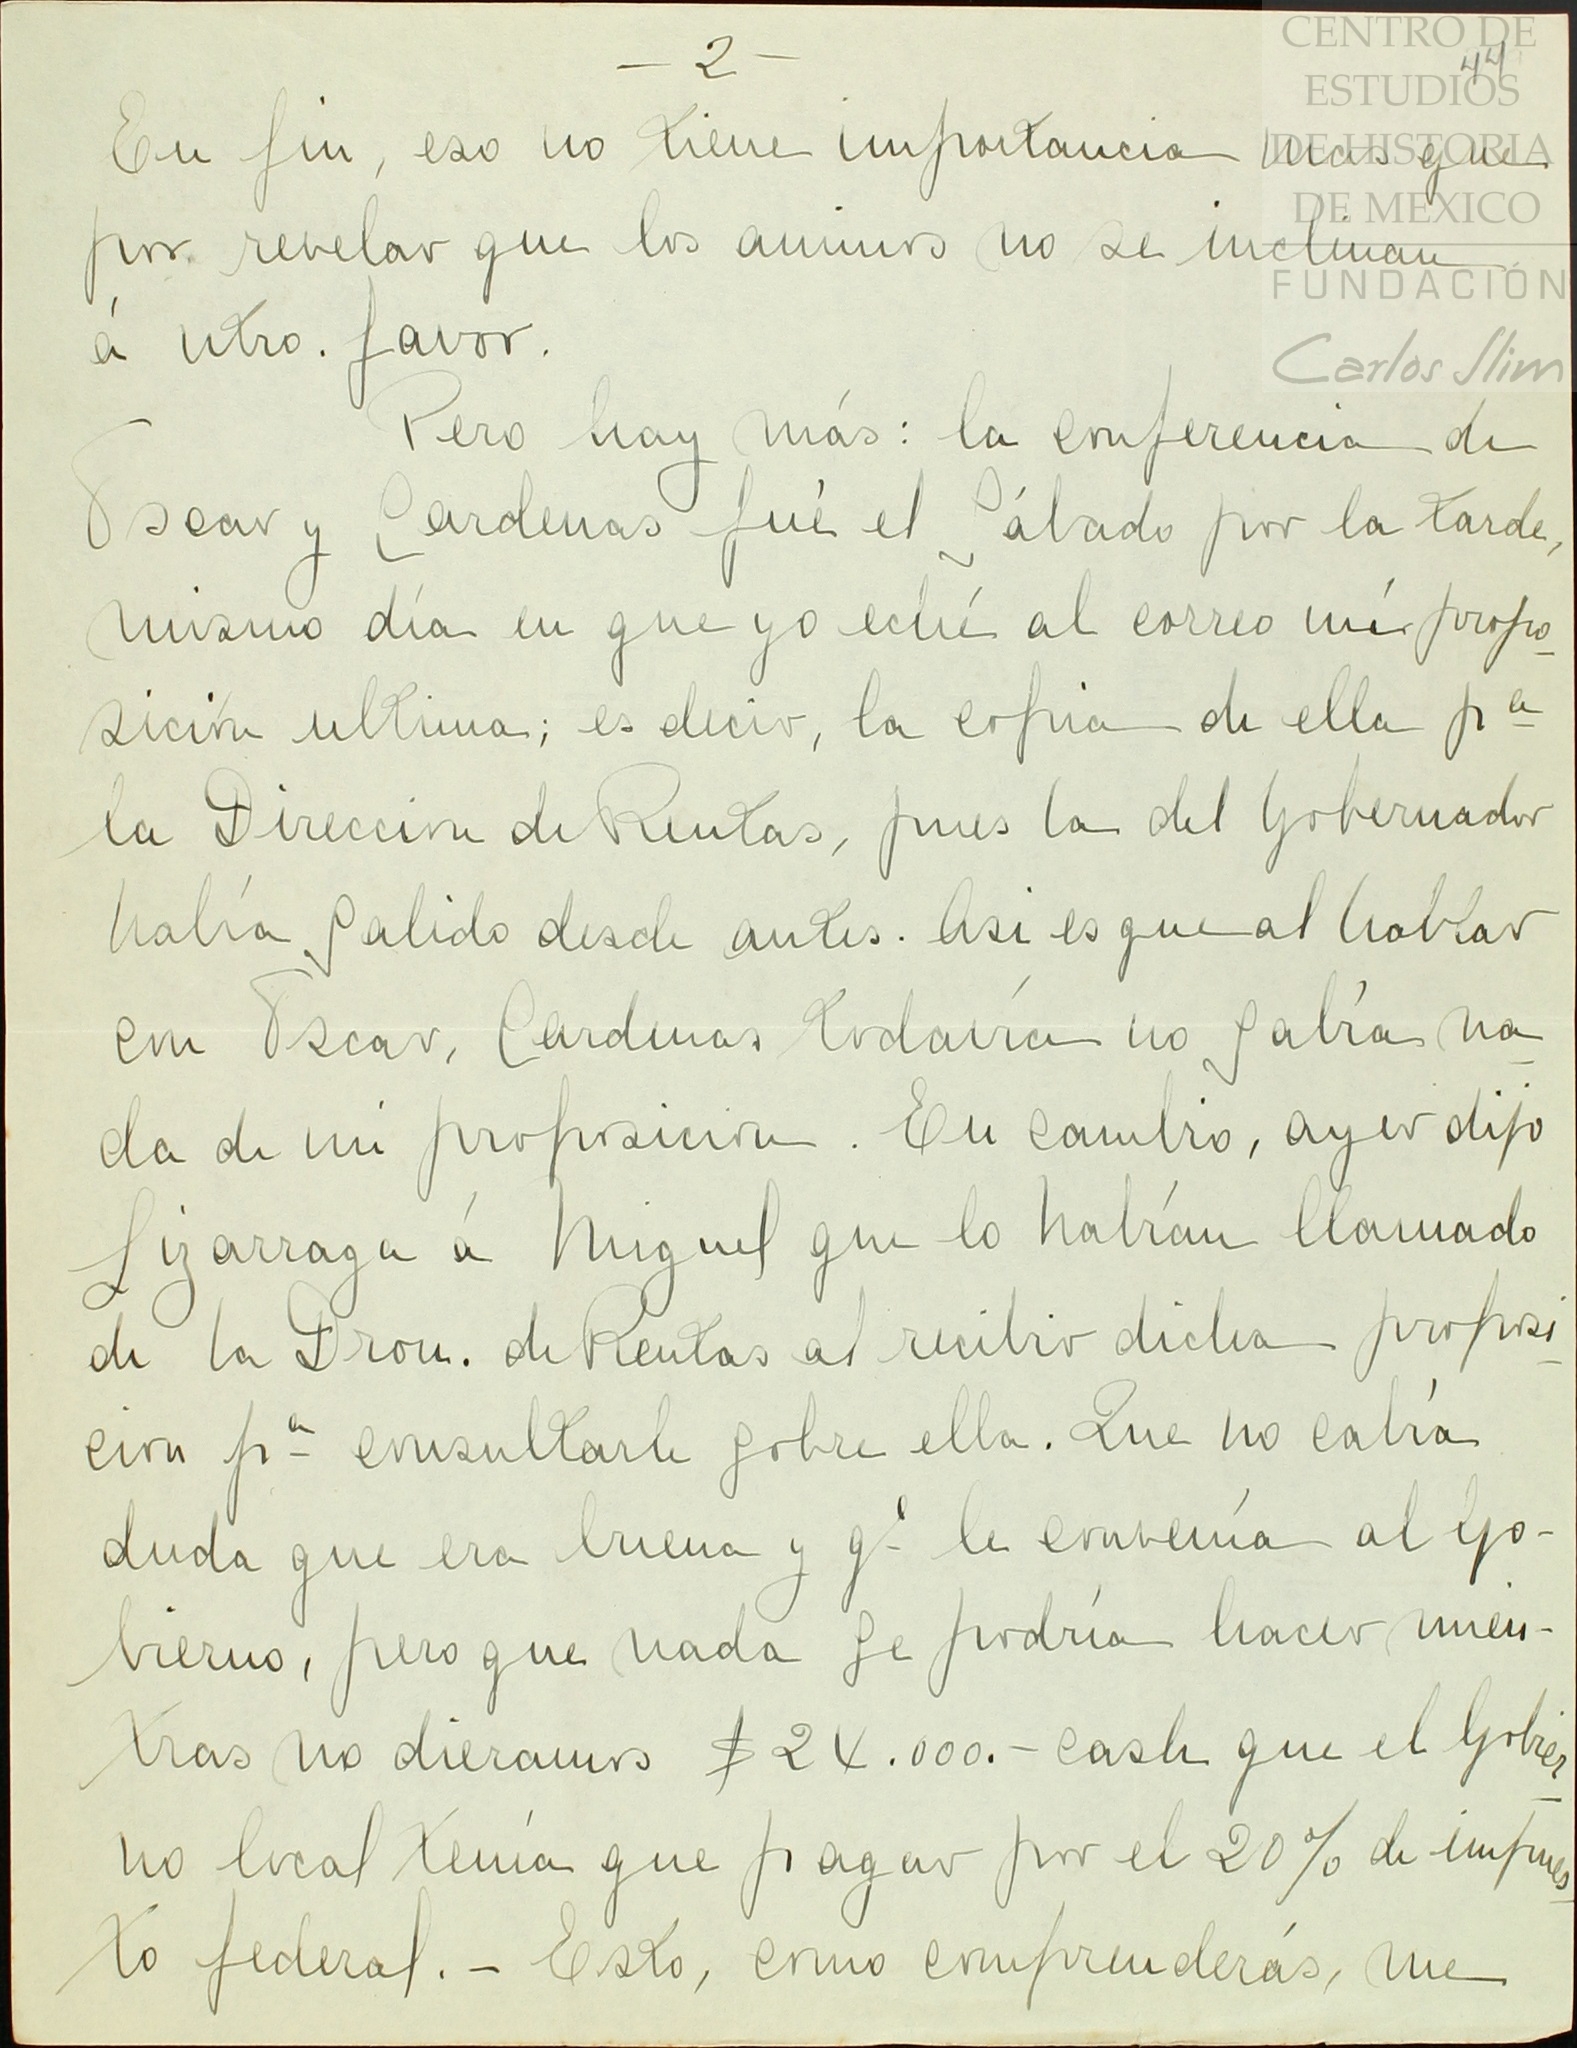 - 2 -
44
CENTRO DE
ESTUDIOS
DE HISTORIA
DE MEXICO
FUNDACIÓN
Carlos Slim
En fin, eso no tiene importancia mas que
por revelar que los animos no se inclinan
á ntro. favor.
Pero hay más: la conferencia de
Oscar y Cardenas fué el Sábado por la tarde,
mismo día en que yo eché al correo mi propo-
sición ultima; es decir, la copia de ella pª
la Direccion de Rentas, pues la del Gobernador
había salido desde antes. Asi es que al hablar
con Oscar, Cardenas todavía no sabía na-
da de mi proposicion. En cambio, ayer dijo
Lizarraga á Miguel que lo habían llamado
de la Dron. de Rentas al recibir dicha proposi-
cion pª consultarle sobre ella. Que no cabía
duda que era buena y qe le convenía al Go-
bierno, pero que nada se podría hacer mien-
tras no dieramos $24.000.- cash que el Gobier-
no local tenía que pagar por el 20% de impues-
to federal. - Esto, como comprenderás, me